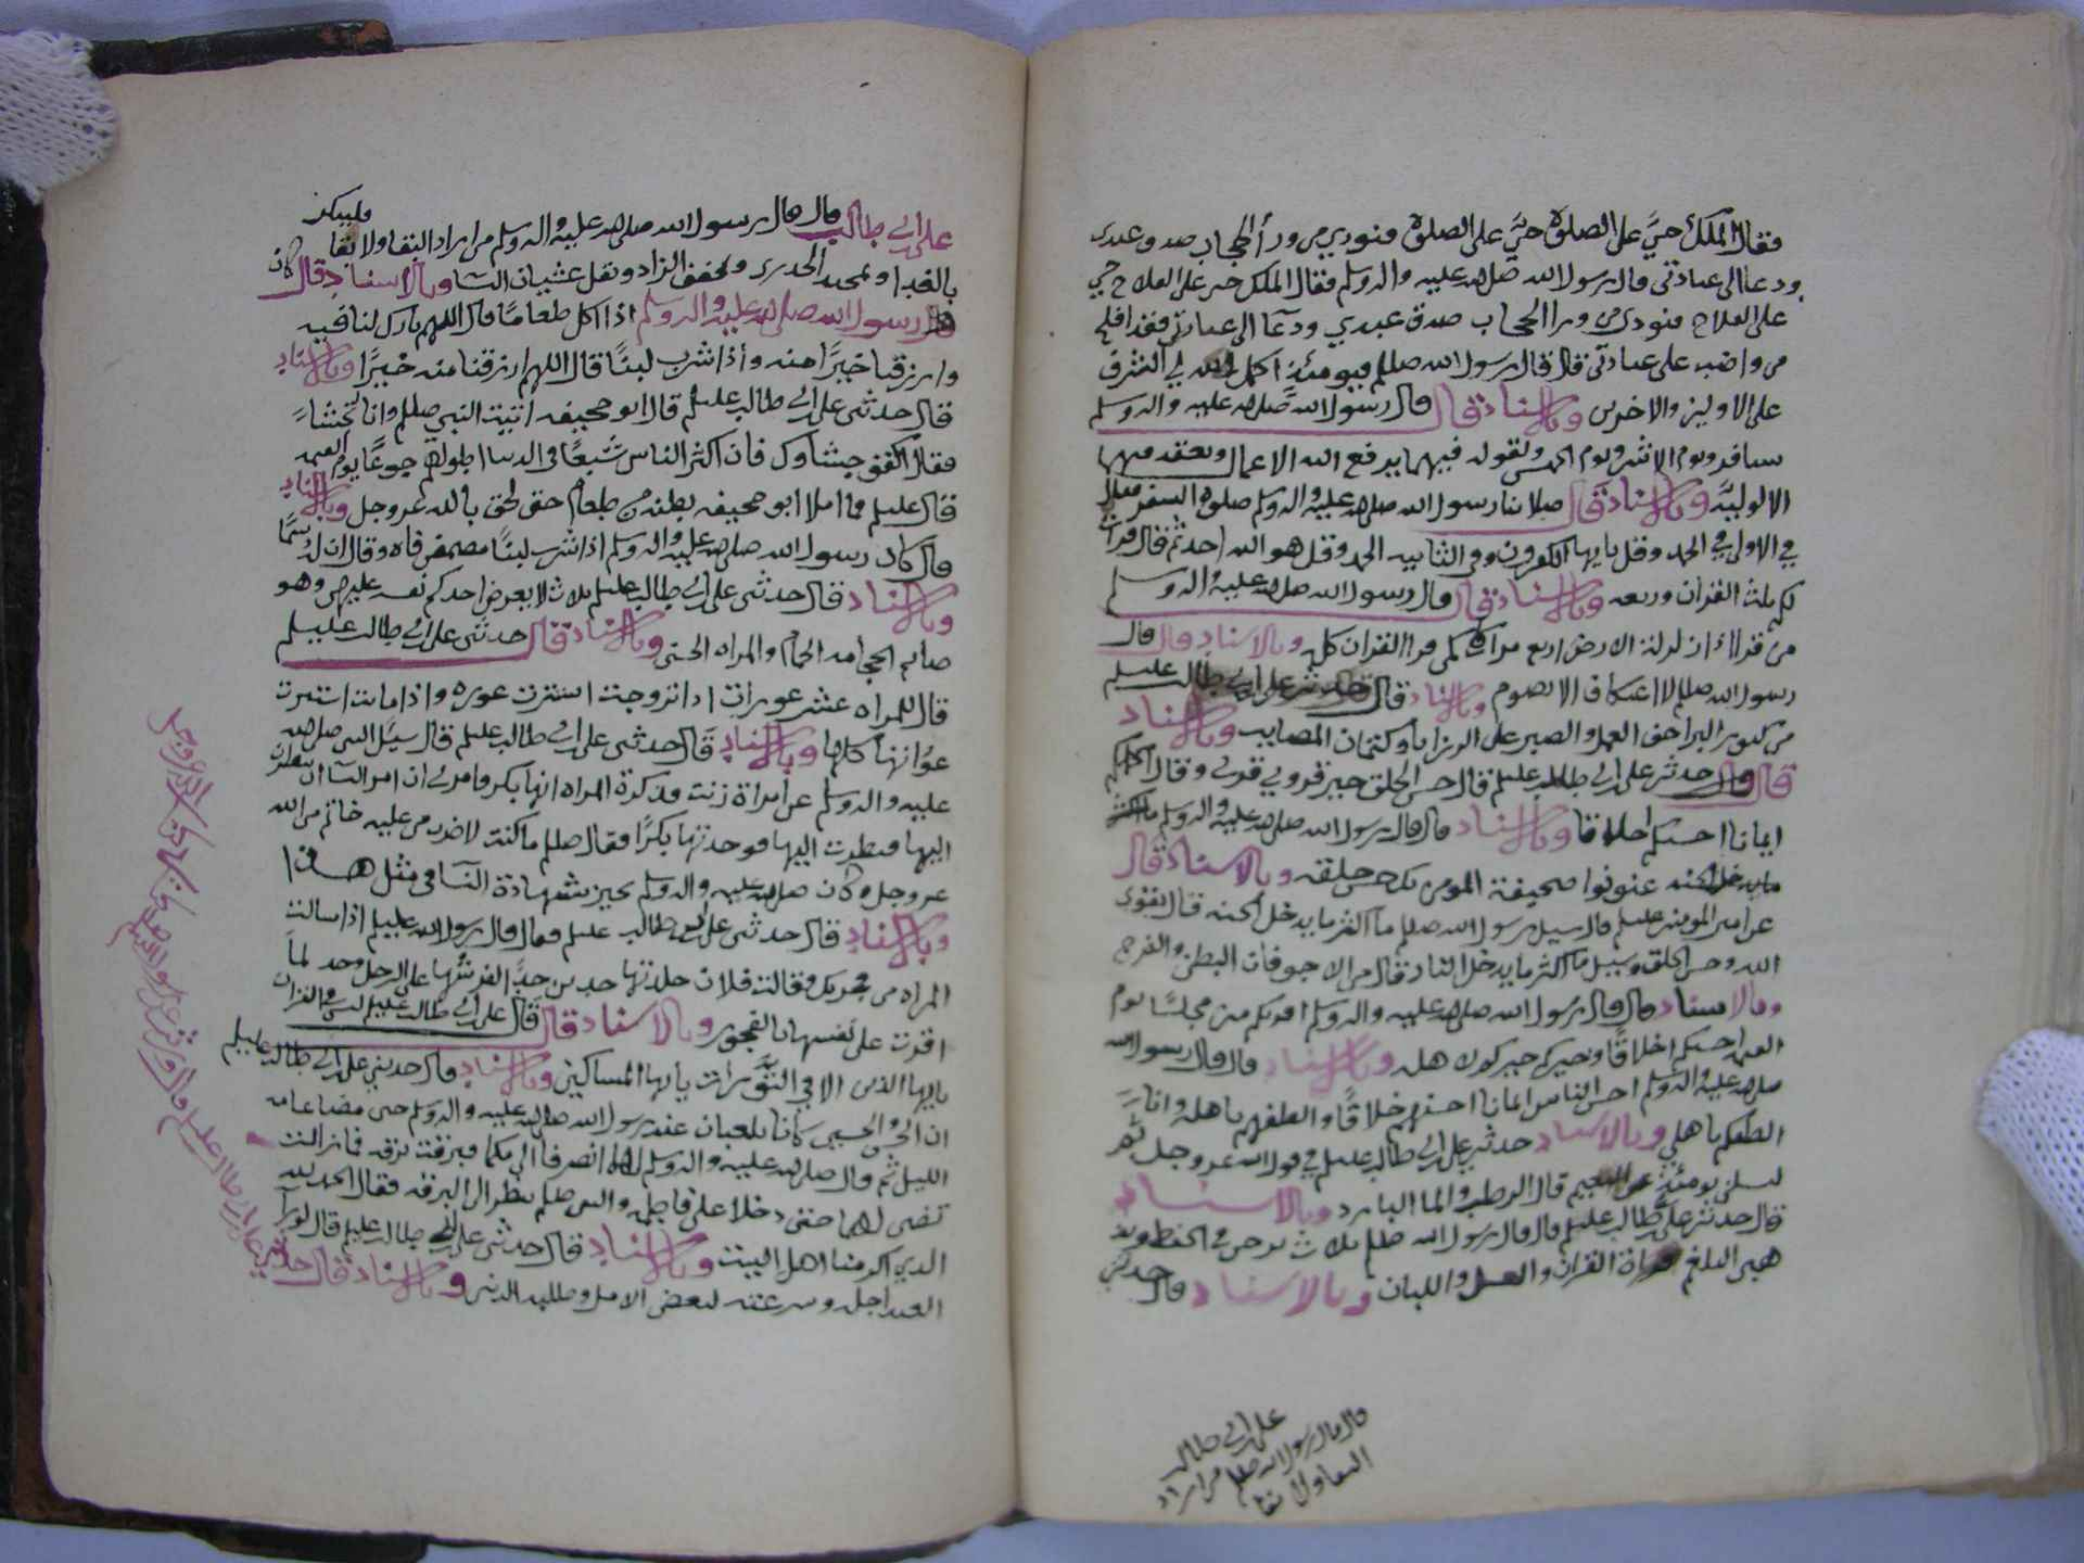 فقال الملك حيَّ على الصلوة حيَّ على الصلوة فنودي من ورأ الحجاب صدق عبدى
ودعا الى عبادتى قال رسول الله صلى الله عليه واله وسلم فقال الملك حى على الفلاح حي
على الفلاح فنودى من ورا الحجاب صدق عبدي ودعا الى عبادتى فقد افلح
من واضب على عبادتى قال رسول الله صللم فيومئذ اكمل الله لي الشرف
على الاولين والاخرين وبالاسناد قال قال رسول الله صلى الله عليه واله وسلم
سافر ويوم الاثنين ويوم الخميس ويقول فيهما يرفع الله الاعمال ويعقد فيهما
الالوية وبالاسناد قال صلا بنا رسول الله صلى الله عليه واله وسلم صلوة السفر
في الاولى الحمد وقل يايها الكفرون وفي الثانيه الحمد وقل هو الله احد ثم قال قرات
لكم ثلث القران وربعه وبالاسناد قال قال رسول الله صلى الله عليه واله وسلم
من قرا اذا زلزلة الارض اربع مرات كمن قرا القران كله وبالاسناد قال قال
رسول الله صللم لا اعتكاف الا بصوم وبالاسناد قال حدثنى على ابي طالب عليلم
من كنوز البر اخفى العمل والصبر على الرزايا وكتمان المصايب وبالاسناد
قال قال حدثنى على ابي طالب عليلم قال حسن الخلق خير قرين وقال اكملكم
ايمانا احسنكم اخلاقا وبالاسناد قال قال رسول الله صلى الله عليه واله وسلم
عنونوا صحيفة المومن بحسن خلقه وبالاسناد قال
عن امير المومنين عليلم قال سيل رسول الله صللم ما اكثر ما يدخل الجنه قال تقوى
الله وحسن الخلق وسيل ما اكثر ما يدخل النار قال من الاجوفان البطن والفرج
وبالاسناد قال قال رسول الله صلى الله عليه واله وسلم اقربكم منى مجلسًا يوم
القيمه احسنكم اخلاقًا وخيركم خيركم لاهله وبالاسناد قال قال رسول الله
صلى الله عليه واله وسلم احسن الناس ايمانا احسنهم خلاقًا والطفهم باهله وانا
الطفكم باهلي وبالاسناد حدثنى على ابي طالب عليلم في قول الله عز وجل ثم
لتسئلن يومئذ عن النعيم قال الرطب والما البارد وبالاسناد
قال حدثنى على ابي طالب عليلم قال قال رسول الله صللم ثلاث يزدن في الحفظ ويذ
هبن البلغم قراة القران والعسل واللبان وبالاسناد قال حدثنى
على ابي طالب
قال قال رسول الله صللم من اراد
البقا ولا بقا
على ابي طالب قال قال رسول الله صلى الله عليه واله وسلم من اراد البقا ولا بقا فليبكر
بالغدا و وليخفف الزاد ويقل غشيان النسا وبالاسناد قال كان
رسول الله صلى الله عليه واله وسلم اذا اكل طعامًا قال اللهم بارك لنا فيه
وارزقنا خيرًا منه واذا شرب لبنًا قال اللهم ارزقنا منه خيرًا وبالاسناد
قال حدثنى على ابي طالب عليلم قال ابو جحيفه اتيت النبي صللم وانا اتجشاء
فقال اكفف جشاؤك فان اكثر الناس شبعًا فى الدنيا اطولهم جوعًا يوم القيمه
قال عليلم فما املا ابو جحيفه بطنه من طعام حتى لحق بالله عز وجل وبالاسناد
قال كان رسول الله صلى الله عليه واله وسلم اذا شرب لبنًا مضمض فاه وقال ان له دسمًا
وبالاسناد قال حدثنى على ابي طالب عليلم ثلاث لا يعرض احدكم نفسه عليهن وهو
صايم الحجامه الحمام والمراه الحسنى وبالاسناد قال حدثنى على ابي طالب عليلم
قال للمراه عشر عورات اذا تزوجت استترت عوره واذا ماتت استترت
عوراتها كلها وبالاسناد قال حدثنى على ابي طالب عليلم قال سيل النبى صلى الله
عليه واله وسلم عن امراة زنت فذكرة المراه انها بكر فامرنى ان امر النسا ان ينظرن
اليها فنظرن اليها فوجدنها بكرًا فقال صللم ما كنت لاضرب من عليه خاتم من الله
عز وجل وكان صلى الله عليه واله وسلم يجيز شهادة النسا فى مثل هذا
وبالاسناد قال حدثنى على ابى طالب عليلم قال قال رسول الله عليلم اذا سالت
المراه من فجر بك فقالت فلان جلدتها حدين حدًا لفريتها على الرجل وحد لما
اقرت على نفسها بالفجور وبالاسناد قال قال على ابي طالب عليلم ليس فى القران
يايها الذين الا في التورات يايها المساكين وبالاسناد قال حدثنى على ابي طالب عليلم
ان الحسن والحسين كانا يلعبان عند رسول الله صلى الله عليه واله وسلم حتى مضا عامه
الليل ثم قال صلى الله عليه واله وسلم لهما انصرفا الى امكما فبرقت برقه فما زالت
تضى لهما حتى دخلا على فاطمه والنبى صللم ينظر الى البرقه فقال الحمد لله
الذي اكرمنا اهل البيت وبالاسناد قال حدثنى على ابي طالب عليلم قال لو رأ
العبد اجله وسرعته لبغض الامل وطلب الدنيا وبالاسناد قال حدثنى
على ابي طالب عليلم قال
الله عز وجل